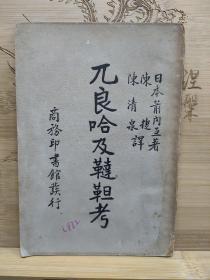 日本箭內亙著
陳捷
陳清泉譯
兀良哈及韃靼考
商務印書館發行
涅槃